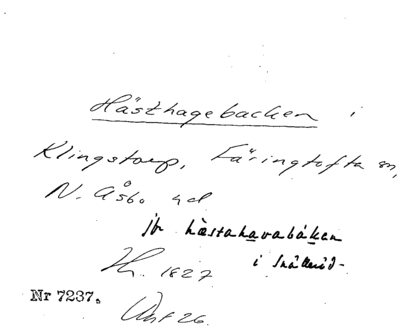 Hästhagebacken i
Klingstorp, Färingtofta sn,
N. Åsbo hd
jfr hästahavabáken
i Snälleröd
1827
Nr 7237.
26